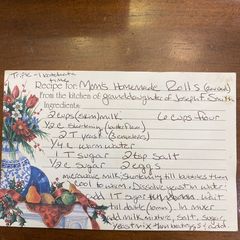 Triple - 1 batch at a time
Recipe for: Moms Homemade Rolls
From the kitchen of granddaughter of Joseph F. Smith
Ingredients:
2 cups (skim) milk 6 cups flour
1/2 C shortening (butter flavor)
2 T yeast (3 envelopes)
1/4 C warm water
1 T sugar 2 tsp salt
1/2 C sugar 2 eggs
microwave milk, shortening till
Cool to warm. Dissolve yeast in water
add 1 T sugar
in mixer
add milk mixture, salt, sugar,
yeast mix then beat eggs & add